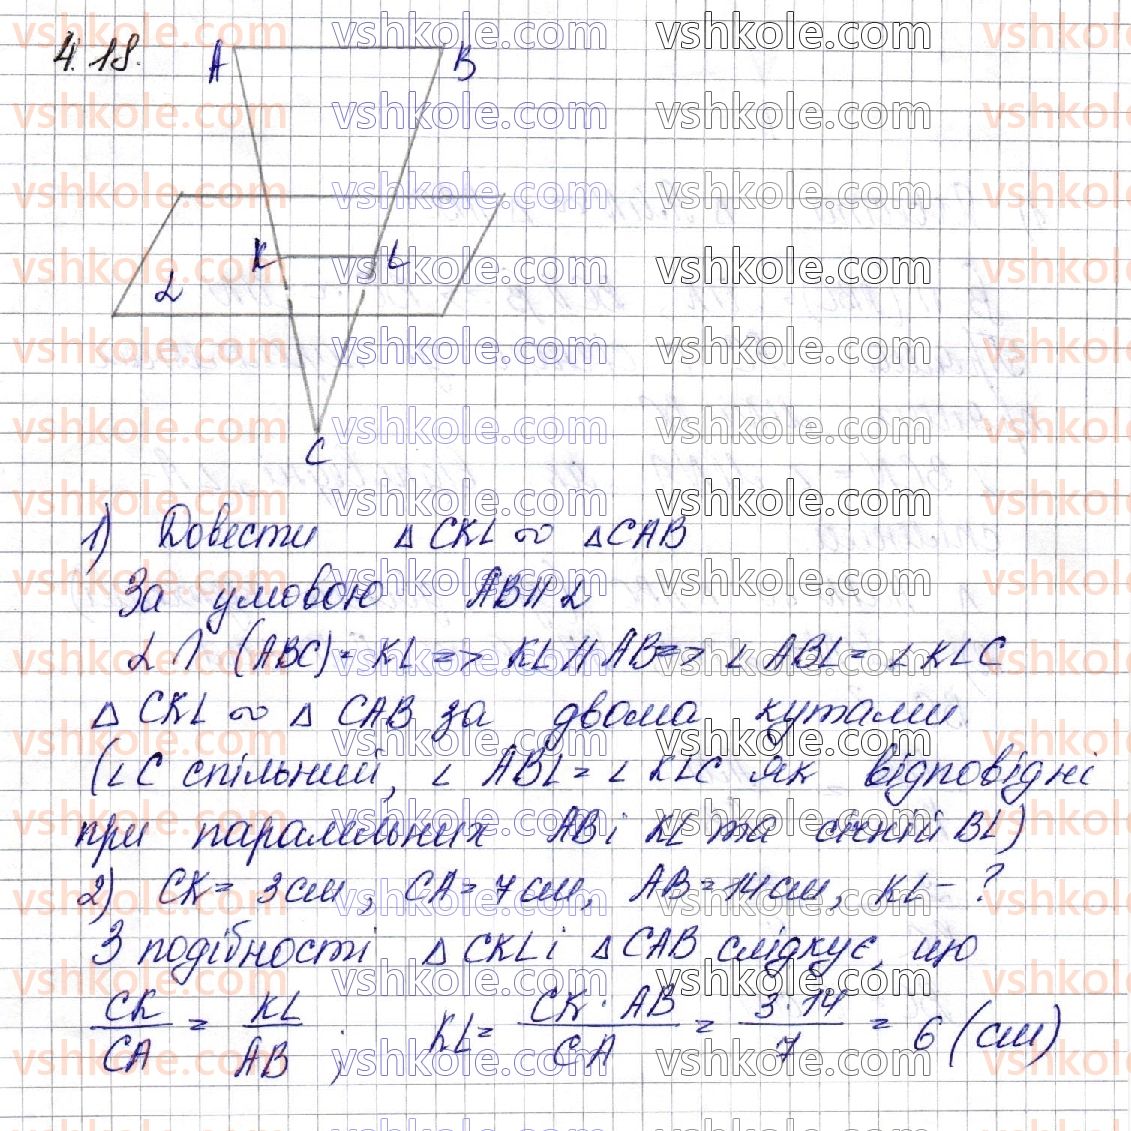 4.18.
A B
K L
α
C
1) Довести △CKL ∾ △CAB
За умовою AB∥α
α ∩ (ABC) = KL => KL ∥ AB => ∠ABL = ∠KLC
△CKL ∾ △CAB за двома кутами
(∠C спільний, ∠ABL = ∠KLC як відповідні
при паралельних AB і KL та січній BL)
2) CK = 3 см, CA = 7 см, AB = 14 см, KL - ?
З подібності △CKL і △CAB слідкує, що
CK/CA = KL/AB; KL = CK · AB/CA = 3·14/7 = 6 (см)
vshkole.com